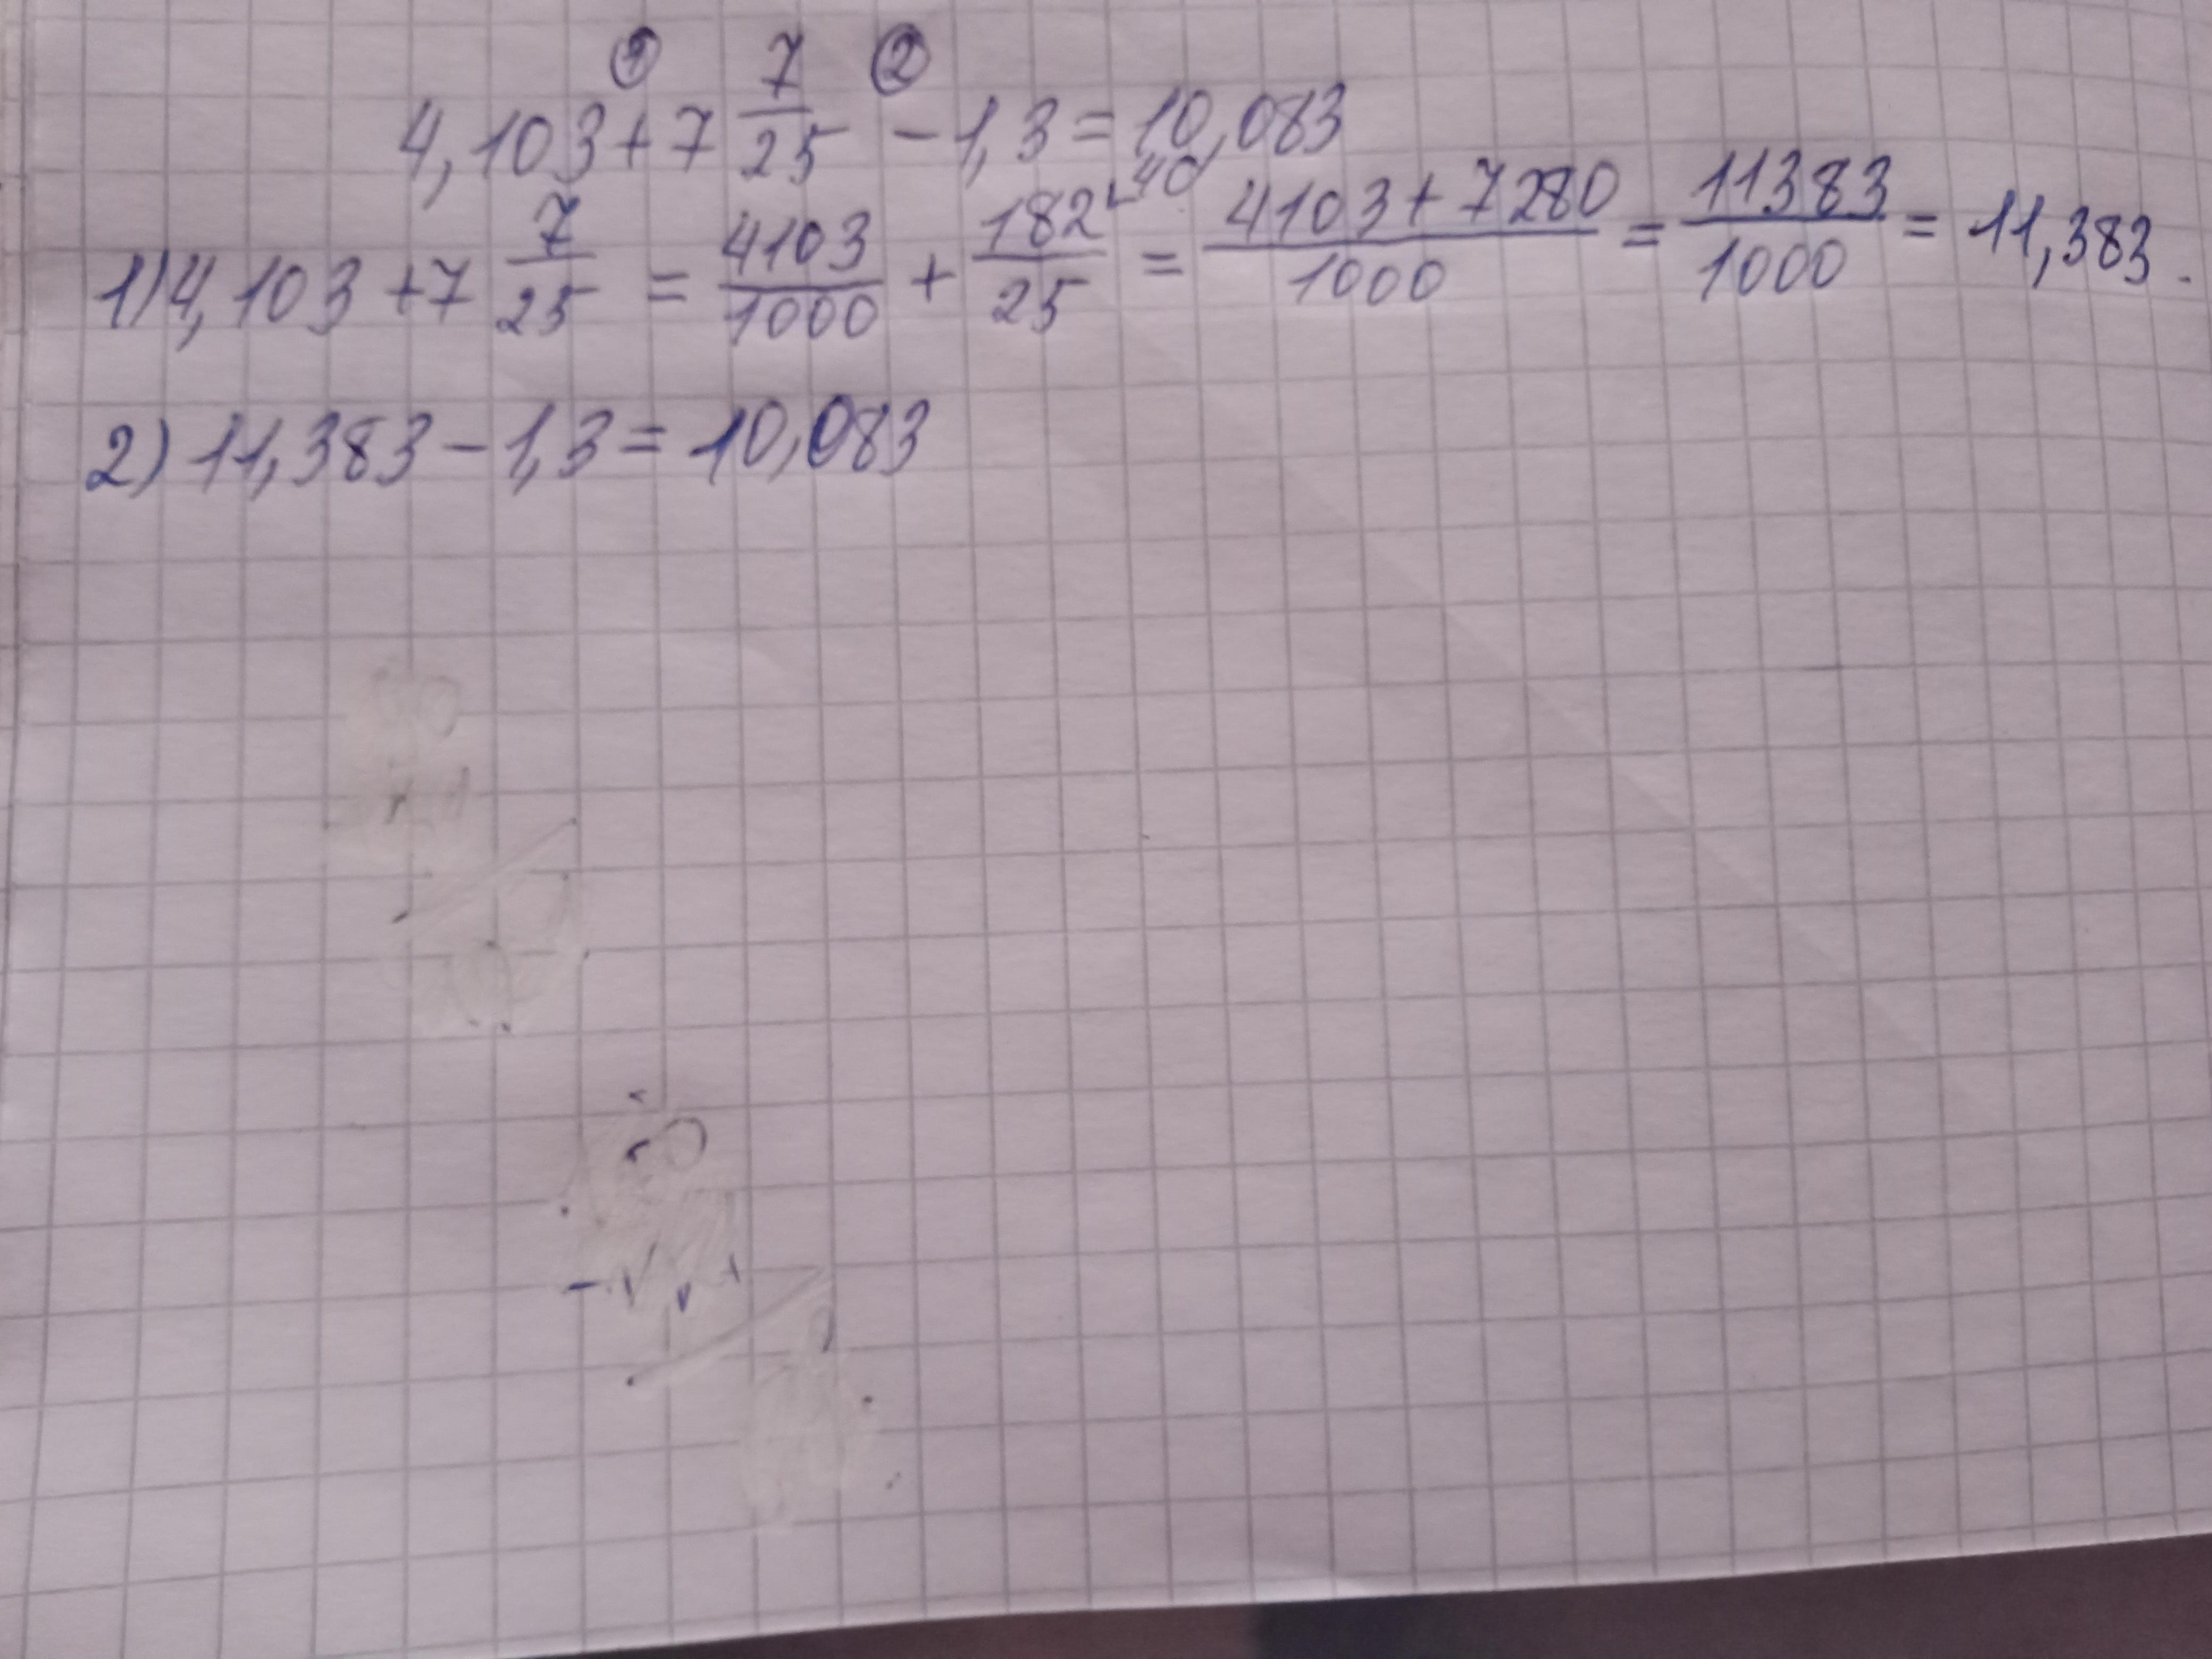 ① 7 ②
4,103 + 7 7/25 - 1,3 = 10,083
1) 4,103 + 7 7/25 = 4103/1000 + 182/25 ⌞40 = (4103 + 7280)/1000 = 11383/1000 = 11,383.
2) 11,383 - 1,3 = 10,083